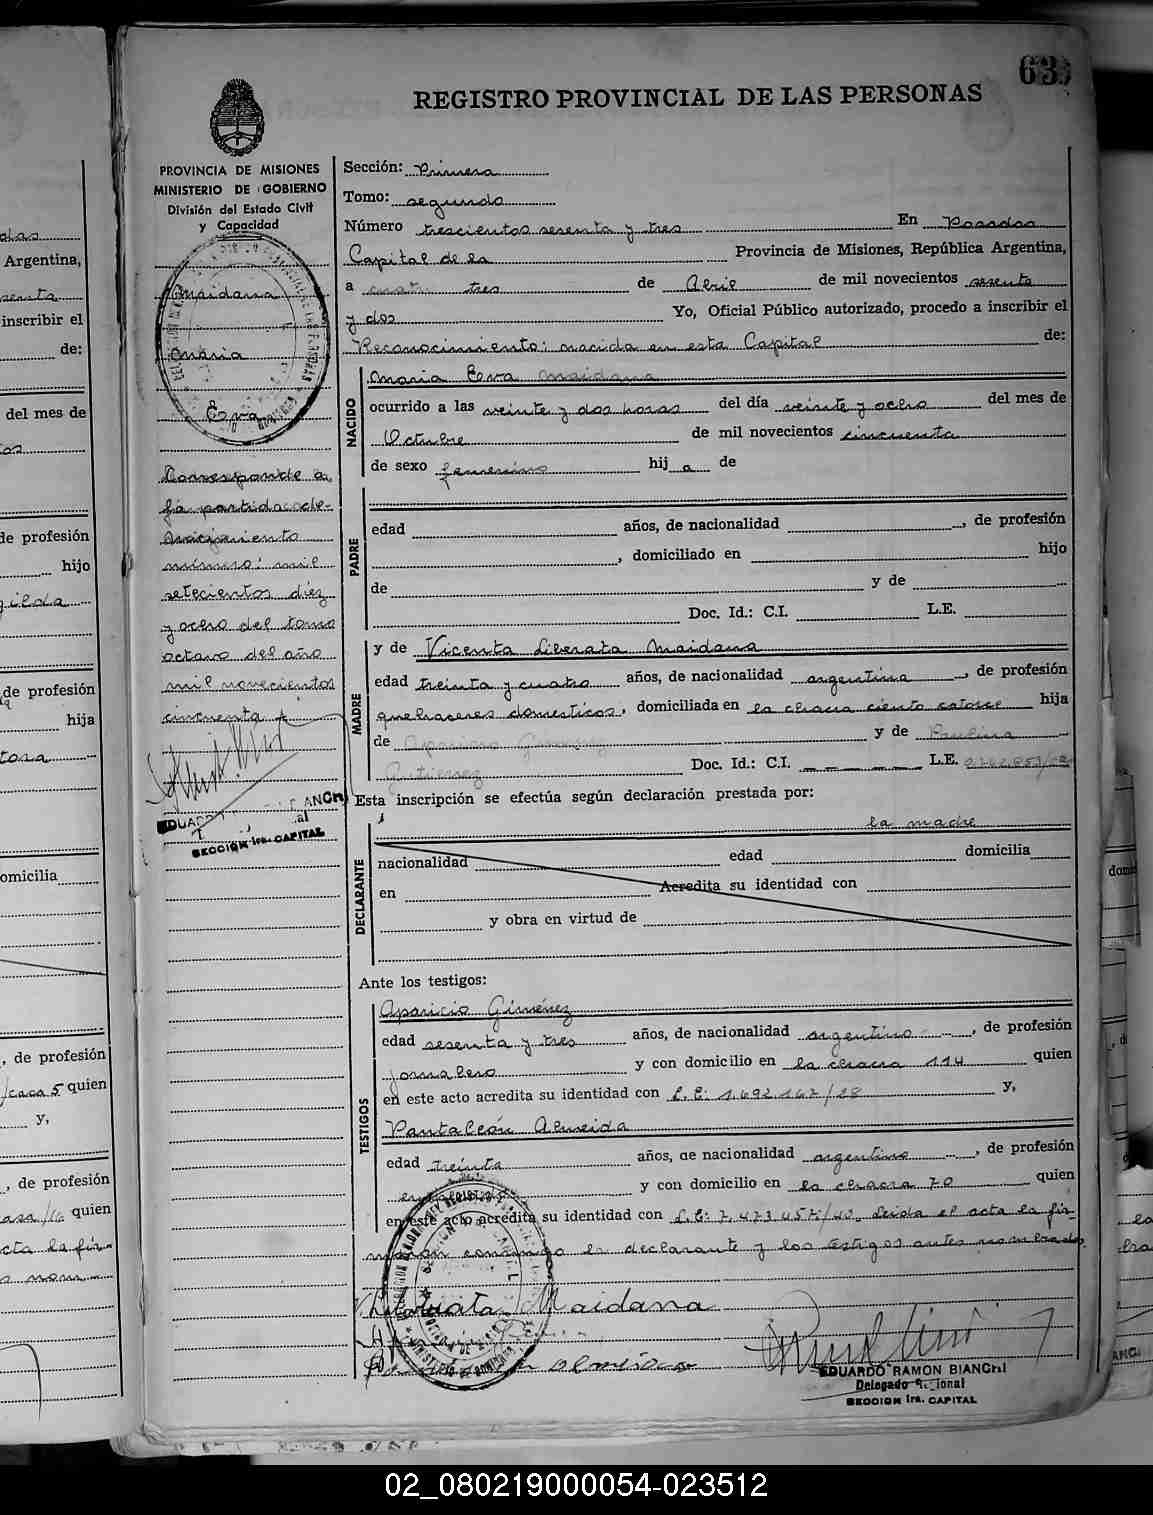 63
REGISTRO PROVINCIAL DE LAS PERSONAS
PROVINCIA DE MISIONES
MINISTERIO DE GOBIERNO
División del Estado Civil
y Capacidad
Maidana
Maria
Eva
Corresponde a
la partida de
número: mil
setecientos diez
y ocho del tomo
octavo del año
mil novecientos
cincuenta
SECCION 1ra. CAPITAL
Sección: Primera
Tomo: segundo
Número trescientos sesenta y tres En Posadas
Capital de la Provincia de Misiones, República Argentina,
a tres de Abril de mil novecientos sesenta
y dos Yo, Oficial Público autorizado, procedo a inscribir el
Reconocimiento: nacida en esta Capital de:
NACIDO
Maria Eva Maidana
ocurrido a las veinte y dos horas del día veinte y ocho del mes de
Octubre de mil novecientos cincuenta
de sexo femenino hija de
PADRE
edad años, de nacionalidad , de profesión
, domiciliado en hijo
de y de
Doc. Id.: C.I. L.E.
MADRE
y de Vicenta Liberata Maidana
edad treinta y cuatro años, de nacionalidad argentina , de profesión
quehaceres domesticos, domiciliada en la chacra ciento catorce hija
de Aparicio Gimenez y de Paulina
Gutierrez Doc. Id.: C.I. L.E.
Esta inscripción se efectúa según declaración prestada por:
DECLARANTE
la madre
nacionalidad edad domicilia
en Acredita su identidad con
y obra en virtud de
Ante los testigos:
TESTIGOS
Aparicio Giménez
edad sesenta y tres años, de nacionalidad argentino , de profesión
jornalero y con domicilio en la chacra 114 quien
en este acto acredita su identidad con L.E: 1.692.167/28 y,
Pantaleón Almeida
edad treinta años, de nacionalidad argentino , de profesión
y con domicilio en la chacra 70 quien
en este acto acredita su identidad con L.E: 7.473.457/40. Leida el acta la fir-
man conmigo la declarante y los testigos antes nombrados.
Maidana
Almeida
EDUARDO RAMON BIANCHI
Delegado
SECCION 1ra. CAPITAL
Argentina,
inscribir el
de:
del mes de
de profesión
hijo
de profesión
hija
omicilia
, de profesión
quien
y,
, de profesión
quien
02_080219000054-023512